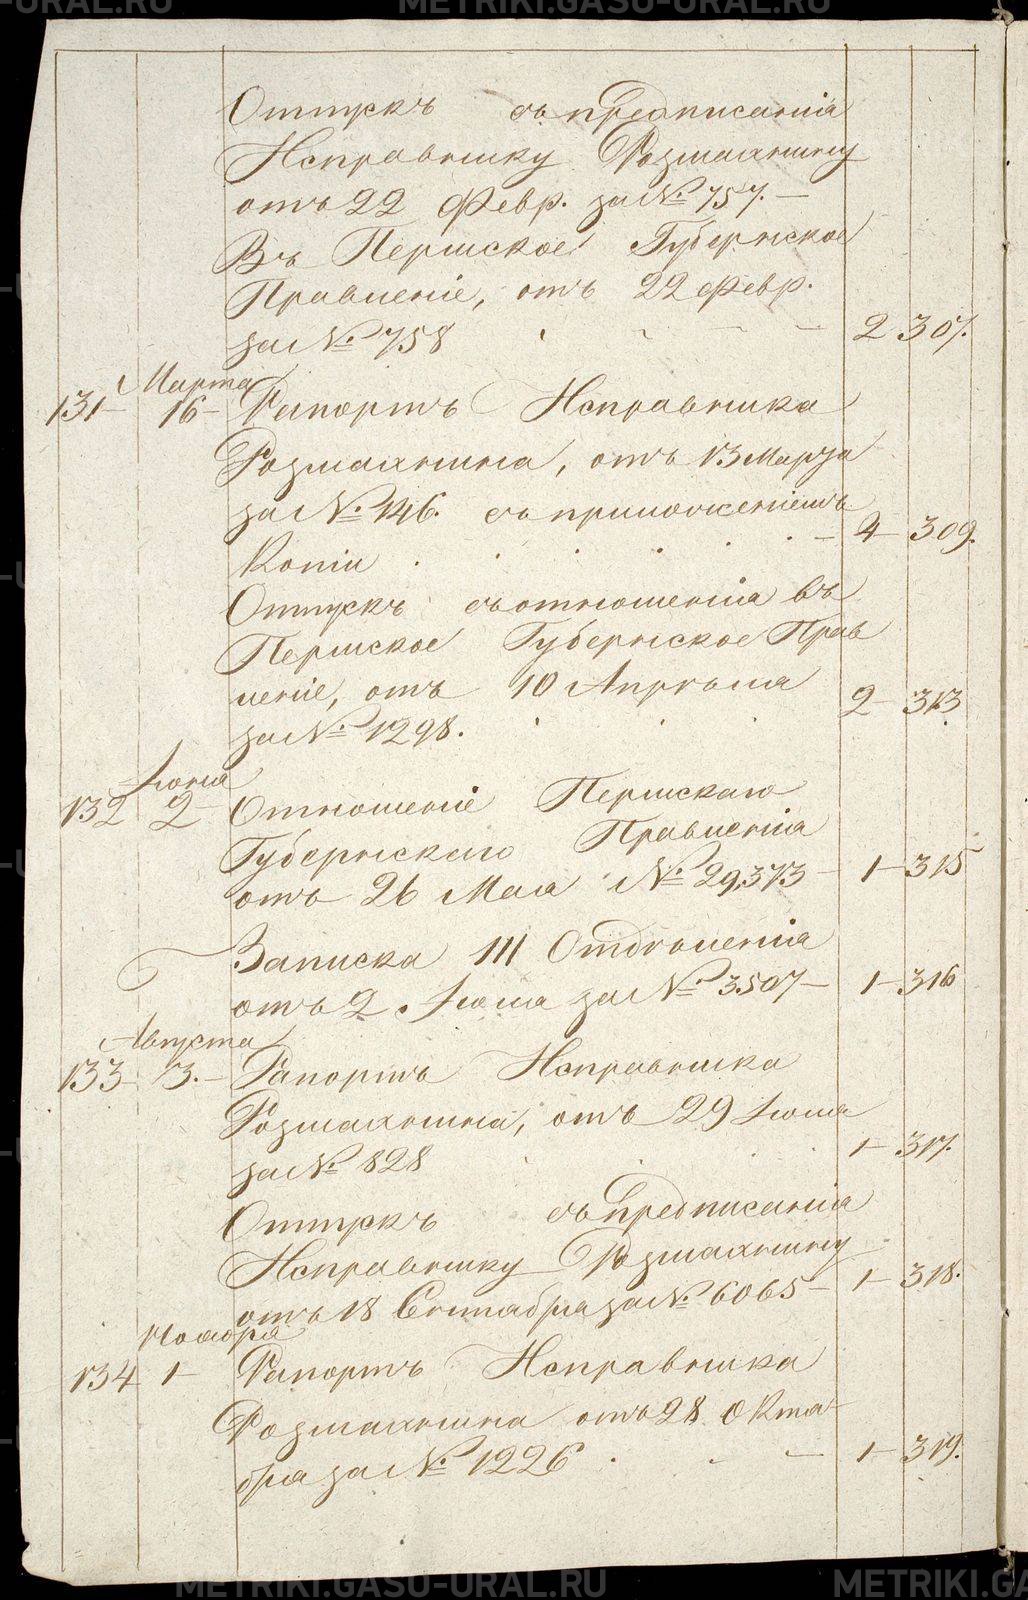 METRIKI.GASU-URAL.RU METRIKI.GASU-URAL.RU
Отпускъ съ предписанія
Исправнику Розмахнину
отъ 22 Февр. за № 757. —
Въ Пермское Губернское
Правленіе, отъ 22 Февр.
за № 758 — 2 307.
Марта
131 — 16 — Рапортъ Исправника
Розмахнина, отъ 13 Марта
за № 146. съ приложеніемъ
Копіи — 4 — 309.
Отпускъ съ отношенія въ
Пермское Губернское Прав
леніе, отъ 10 Апрѣля
за № 1298. 2 — 313
Іюня
132 2 — Отношеніе Пермскаго
Губернскаго Правленія
отъ 26 Мая № 29,373 — 1 — 315
Записка III Отдѣленія
отъ 2 Іюня за № 3507 — 1 — 316
Августа
133 3. — Рапортъ Исправника
Розмахнина, отъ 29 Іюля
за № 828 1 — 317.
Отпускъ съ предписанія
Исправнику Розмахнину
отъ 18 Сентября за № 6065 — 1 — 318.
Ноября
134 1 — Рапортъ Исправника
Розмахнина отъ 28 Октя-
бря за № 1226 — 1 — 319.
METRIKI.GASU-URAL.RU METRIKI.GASU-URAL.RU